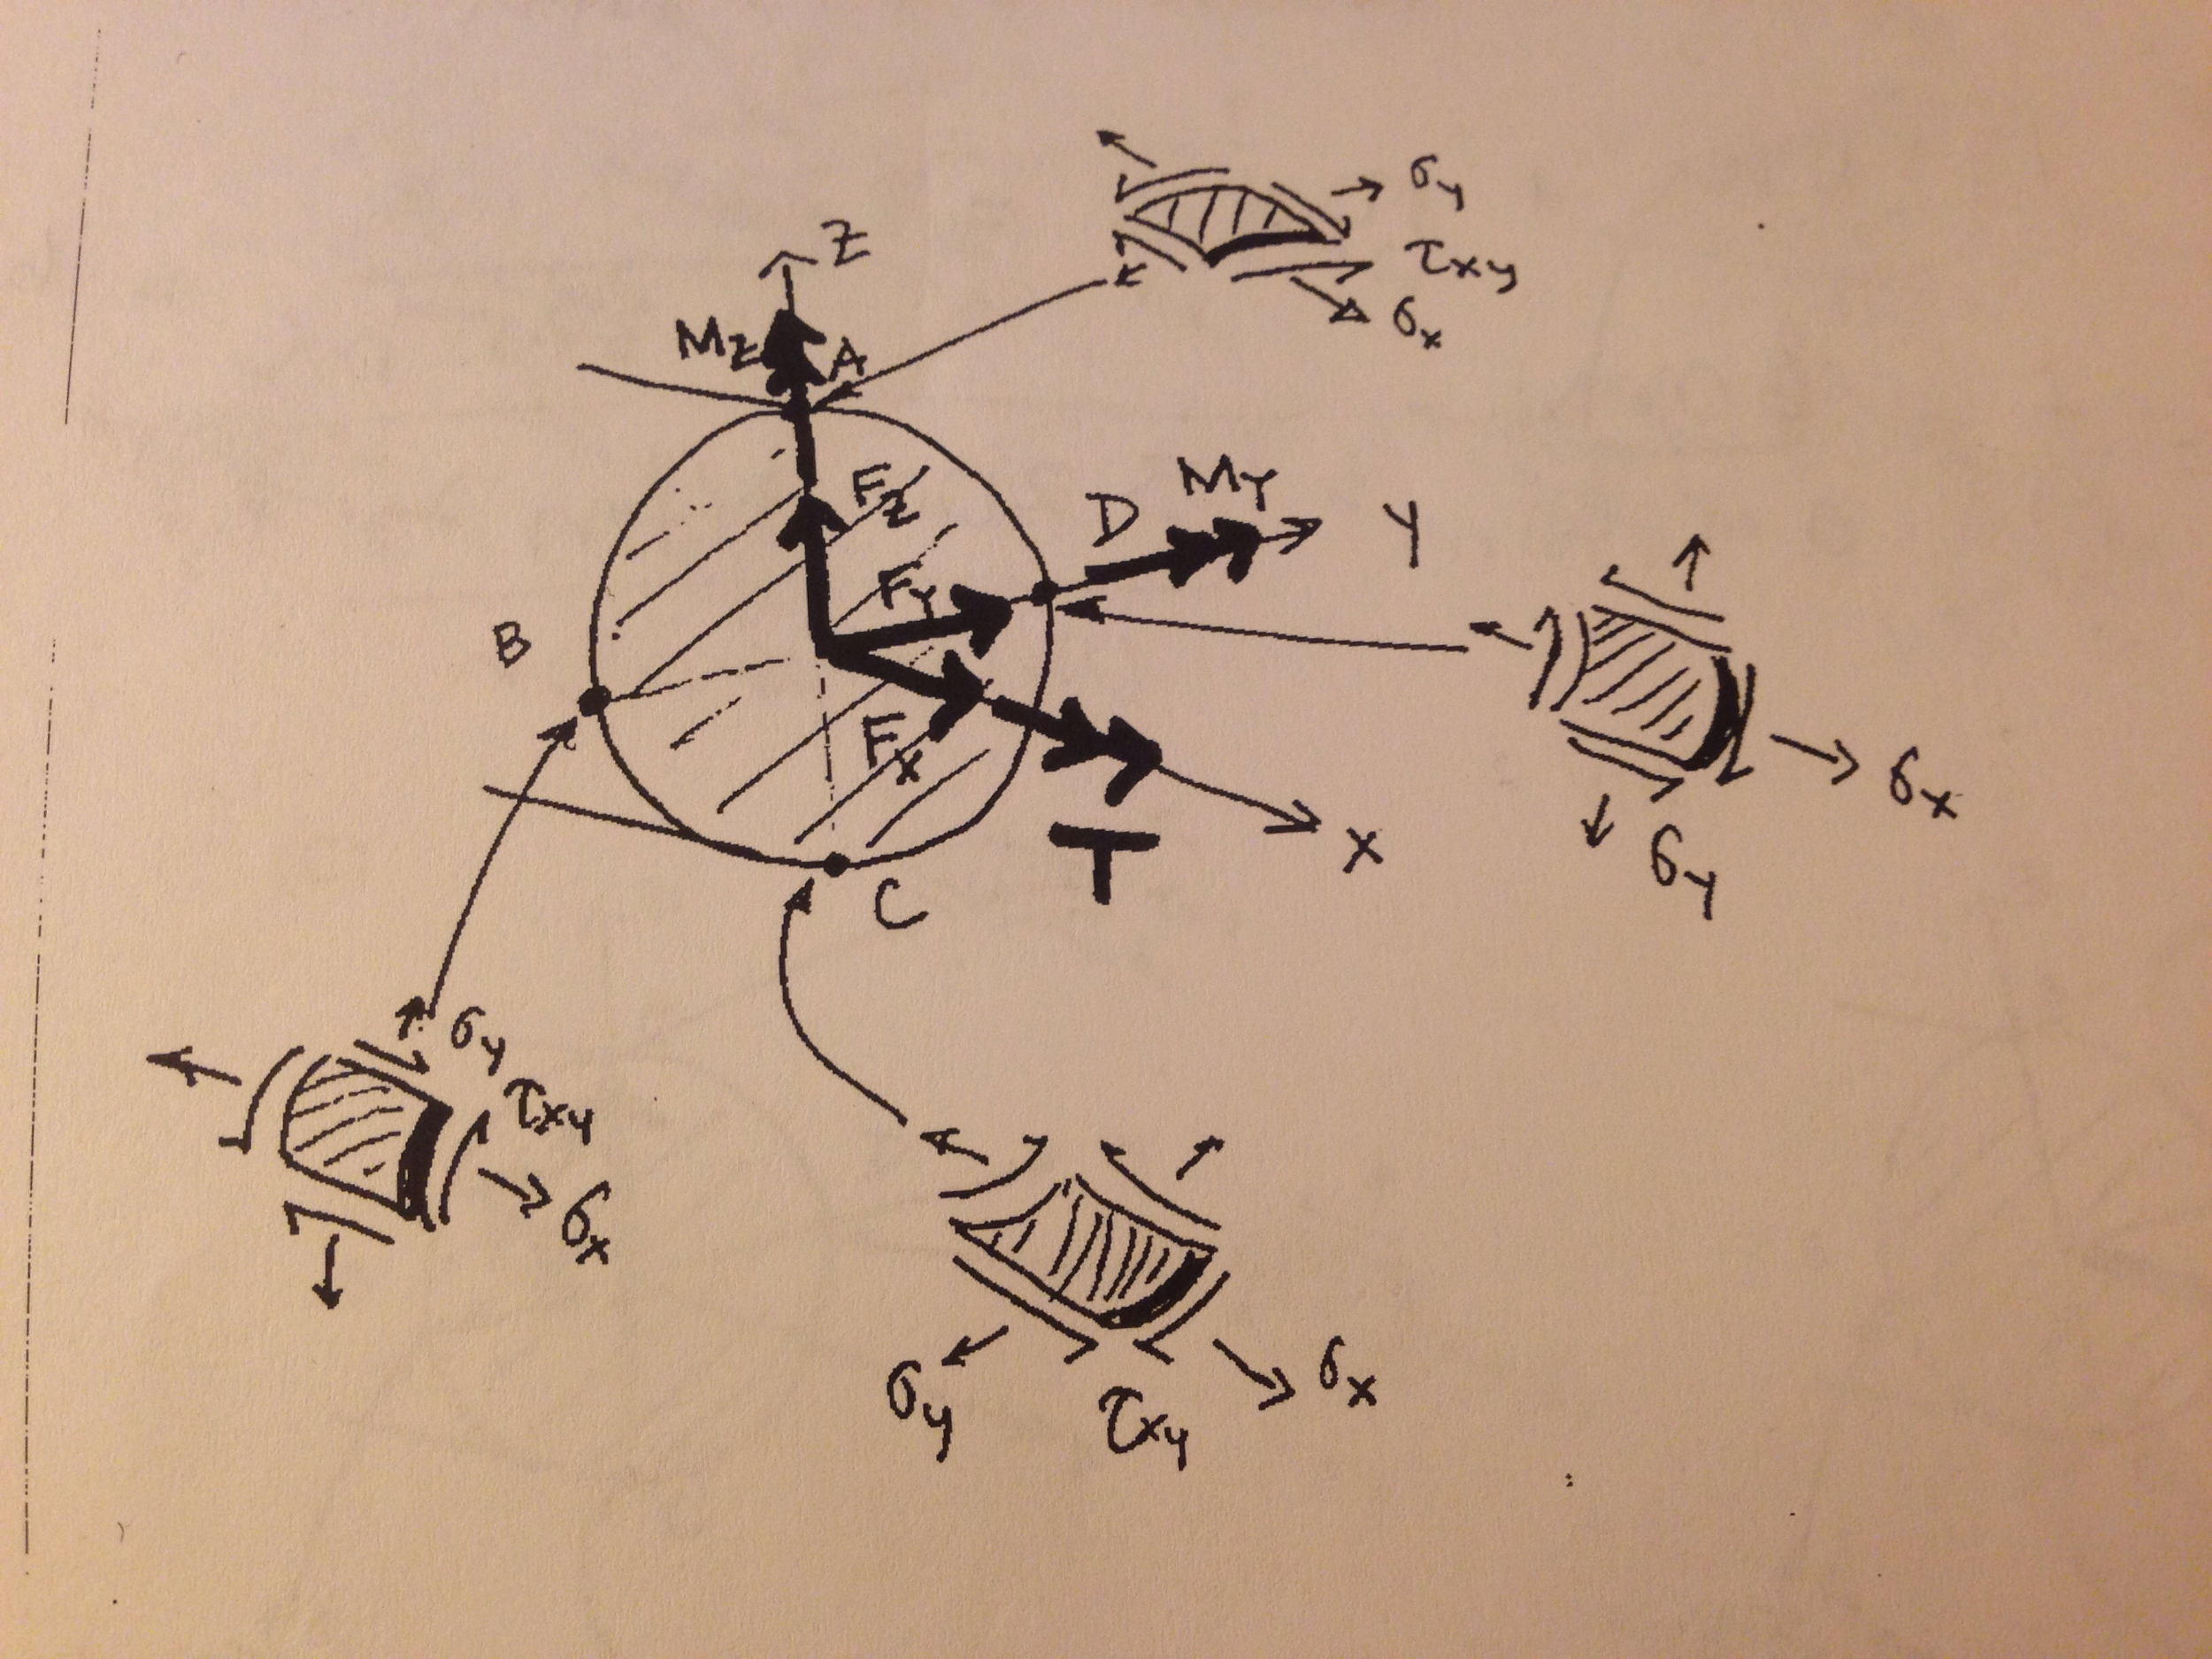 σy
τxy
σx
Z
Mz
A
Fz
D
My
Y
Fy
B
Fx
T
X
C
σx
σy
σy
τxy
σx
σx
σy
τxy